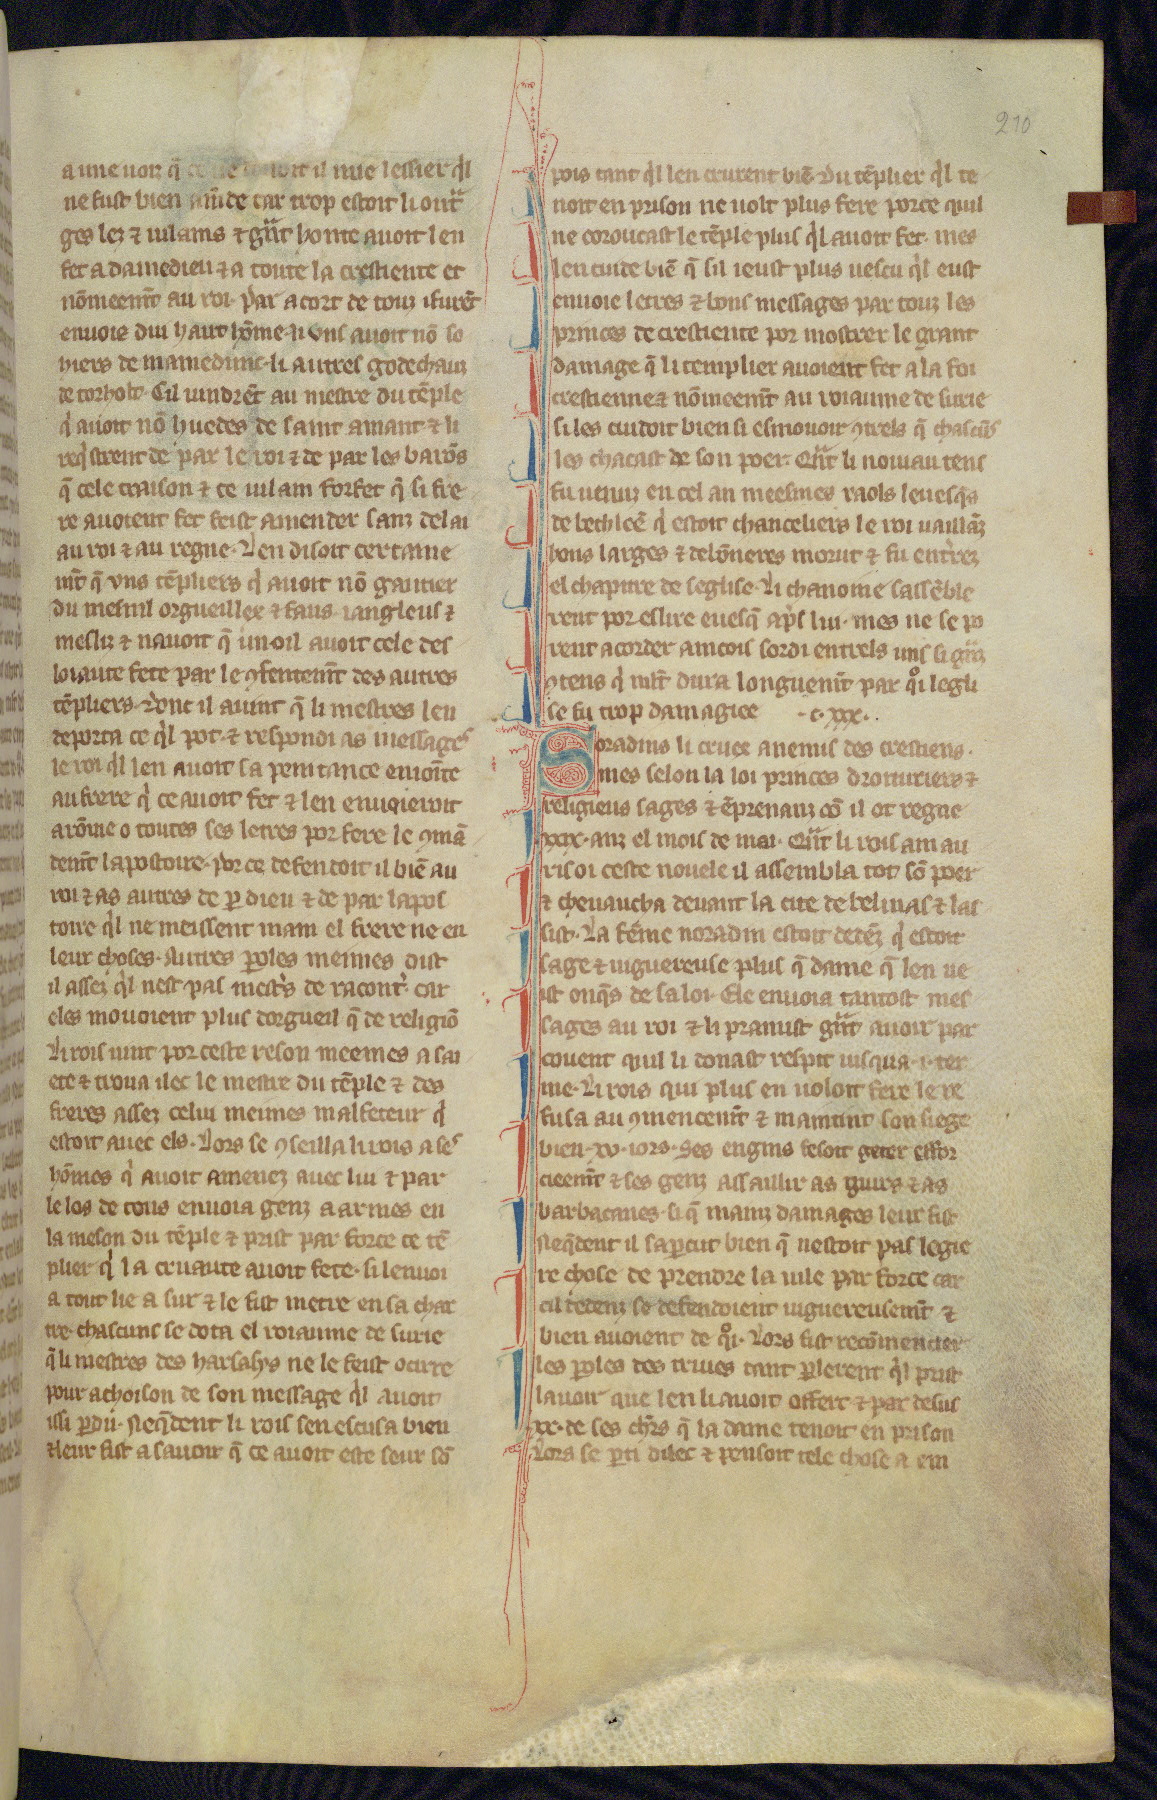 210
a une uoiz q̃ ce ne lessier q̉l
ne fust bien am̃de car trop estoit li outᵃ
ges lez ⁊ uilains ⁊ gᵃ̃t honte auoit len
fet a damedieu ⁊ a toute la crestiente et
nõmeem̃t au roi. par acort de touz i furẽt
enuoie dui haut hõme. li vns auoit nõ se
hiers de mamedunc. li autres godechauz
de torholt. Cil uindrẽt au mestre du tẽple
q̉ auoit nõ huedes de saint amant ⁊ li
req̉strent de par le roi ⁊ de par les barõs
q̃ cele traison ⁊ ce uilain forfet q̃ si fre
re auoient fet feist amender sanz delai
au roi ⁊ au regne. Len disoit certaine
m̃t q̃ vns tẽpliers q̉ auoit nõ gautier
du mesnil orgueillex ⁊ faus iangleus ⁊
mesliz ⁊ nauoit q̃ un oil auoit cele des
loiaute fete par le ꝯsentem̃t des autres
tẽpliers. Dont il auint q̃ li mestres len
deporta ce q̉l pot. ⁊ respondi as messages
le roi q̉l len auoit sa penitance enioĩte
au frere q̉ ce auoit fet ⁊ len enuoieroit
a rõme o toutes ses letres por fere le ꝯmã
dem̃t lapostoire. por ce defendoit il biẽ au
roi ⁊ as autres de ꝑ dieu ⁊ de par lapos
toire q̉l ne meissent main el frere ne en
leur choses. Autres ꝑoles meimes dist
il assez q̉l nest pas mest̉s de racont̉. car
eles mouoient plus dorgueil q̃ de religiõ
Li rois uint por ceste reson meemes a sai
ete ⁊ troua ilec le mestre du tẽple ⁊ des
freres assez celui meimes malfeteur q̉
estoit auec els. Lors se ꝯseilla li rois a ses
hõmes q̉ auoit amenez auec lui ⁊ par
le los de tous enuoia genz a armes en
la meson du tẽple ⁊ prist par force ce tẽ
plier q̉ la cruaute auoit fete. si lenuoi
a tout lie a sur ⁊ le fist metre en sa char
tre. chascuns se dota el roiaume de surie
q̃ li mestres des harsasys ne le feist ocirre
pour achoison de son message q̉l auoit
issi ꝑdu. Neq̃dent li rois sen escusa bien
⁊ leur fist a sauoir q̃ ce auoit este seur sõ
pois tant q̉l len crurent biẽ. Du tẽplier q̉l te
noit en prison ne uolt plus fere porce quil
ne coroucast le tẽple plus q̉l auoit fet. mes
len cuide biẽ q̃ sil ieust plus uescu q̉l eust
enuoie letres ⁊ bons messages par touz les
princes de crestiente por mostrer le grant
damage q̃ li templier auoient fet a la foi
crestienne ⁊ nõmeem̃t au roiaume de surie
si les cuidoit bien si esmouoir ꝯtrels q̃ chascũs
les chacast de son poer. Qᵃ̃t li nouiau tens
fu uenuz en cel an meesmes raols leuesq̃s
de bethleẽ q̉ estoit chanceliers le roi uaillãz
bons larges ⁊ debõneres morut ⁊ fu ent̉rez
el chapitre de seglise. Li chanoine sassẽble
rent por eslire euesq̃ ap̃s lui. mes ne se po
rent acorder aincois sordi entrels uns si gᵃ̃z
ꝯtens q̉ m̃lt dura longuem̃t par qͦi legli
se fu trop damagiee .c.xxx.
Noradins li cruex anemis des crestiens.
mes selon la loi princes droituriers ⁊
religieus sages ⁊ ẽprenanz cõ il ot regne
xxix. anz el mois de mai. Qᵃ̃t li rois amau
ris oi ceste nouele il assembla tot sõ poer
⁊ cheuaucha deuant la cite de belinas ⁊ las
sist. La fẽme noradin estoit dedẽz q̉ estoit
sage ⁊ uiguereuse plus q̃ dame q̃ len ue
ist onq̃s de sa loi. Ele enuoia tantost mes
sages au roi ⁊ li pramist gᵃ̃t auoir par
couent quil li donast respit iusqua .i. ter
me. Li rois qui plus en uoloit fere le re
fusa au ꝯmencem̃t ⁊ maintint son siege
bien .xv. iors. Ses engins fesoit geter effor
cieem̃t ⁊ ses genz assaillir as murs ⁊ as
barbacanes. si q̃ mainz damages leur fist
Neq̃dent il saꝑcut bien q̃ nestoit pas legie
re chose de prendre la uile par force car
cil dedenz se defendoient uiguereusem̃t ⁊
bien auoient de qͦi. Lors fist recõmencier
les ꝑoles des triues tant ꝑlerent q̉l prist
lauoir que len li auoit offert ⁊ par desus
xx. de ses ch̃rs q̃ la dame tenoit en prison
Lors se ꝑti dilec ⁊ pensoit tele chose a em